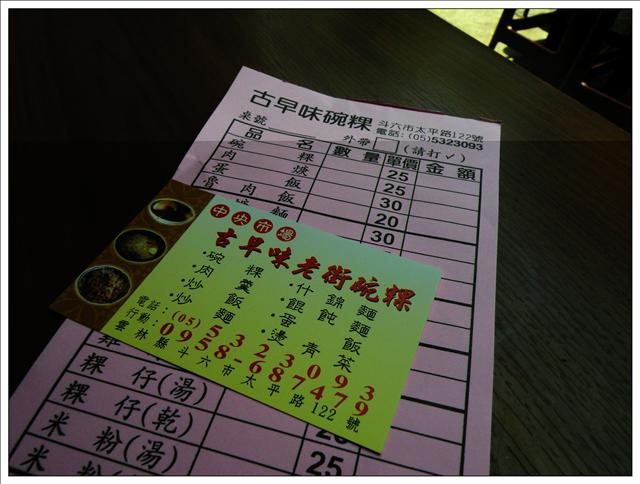 古早味碗粿
斗六市太平路122號
電話:(05)5323093
桌號 外帶 (請打✓)
品名 數量 單價 金額
碗粿 25
肉焿 25
蛋飯 30
魯肉飯 20
麵 30
中央市場
古早味老街碗粿
·碗粿 ·什錦麵
·肉羹 ·餛飩麵
·炒飯 ·蛋飯
·炒麵 ·燙青菜
電話:(05)5323093
行動:0958-687479
雲林縣斗六市太平路122號
粿仔(湯)
粿仔(乾)
米粉(湯) 25
米粉